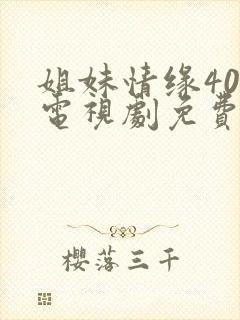 姐妹情缘40
電視劇免費
櫻落三千